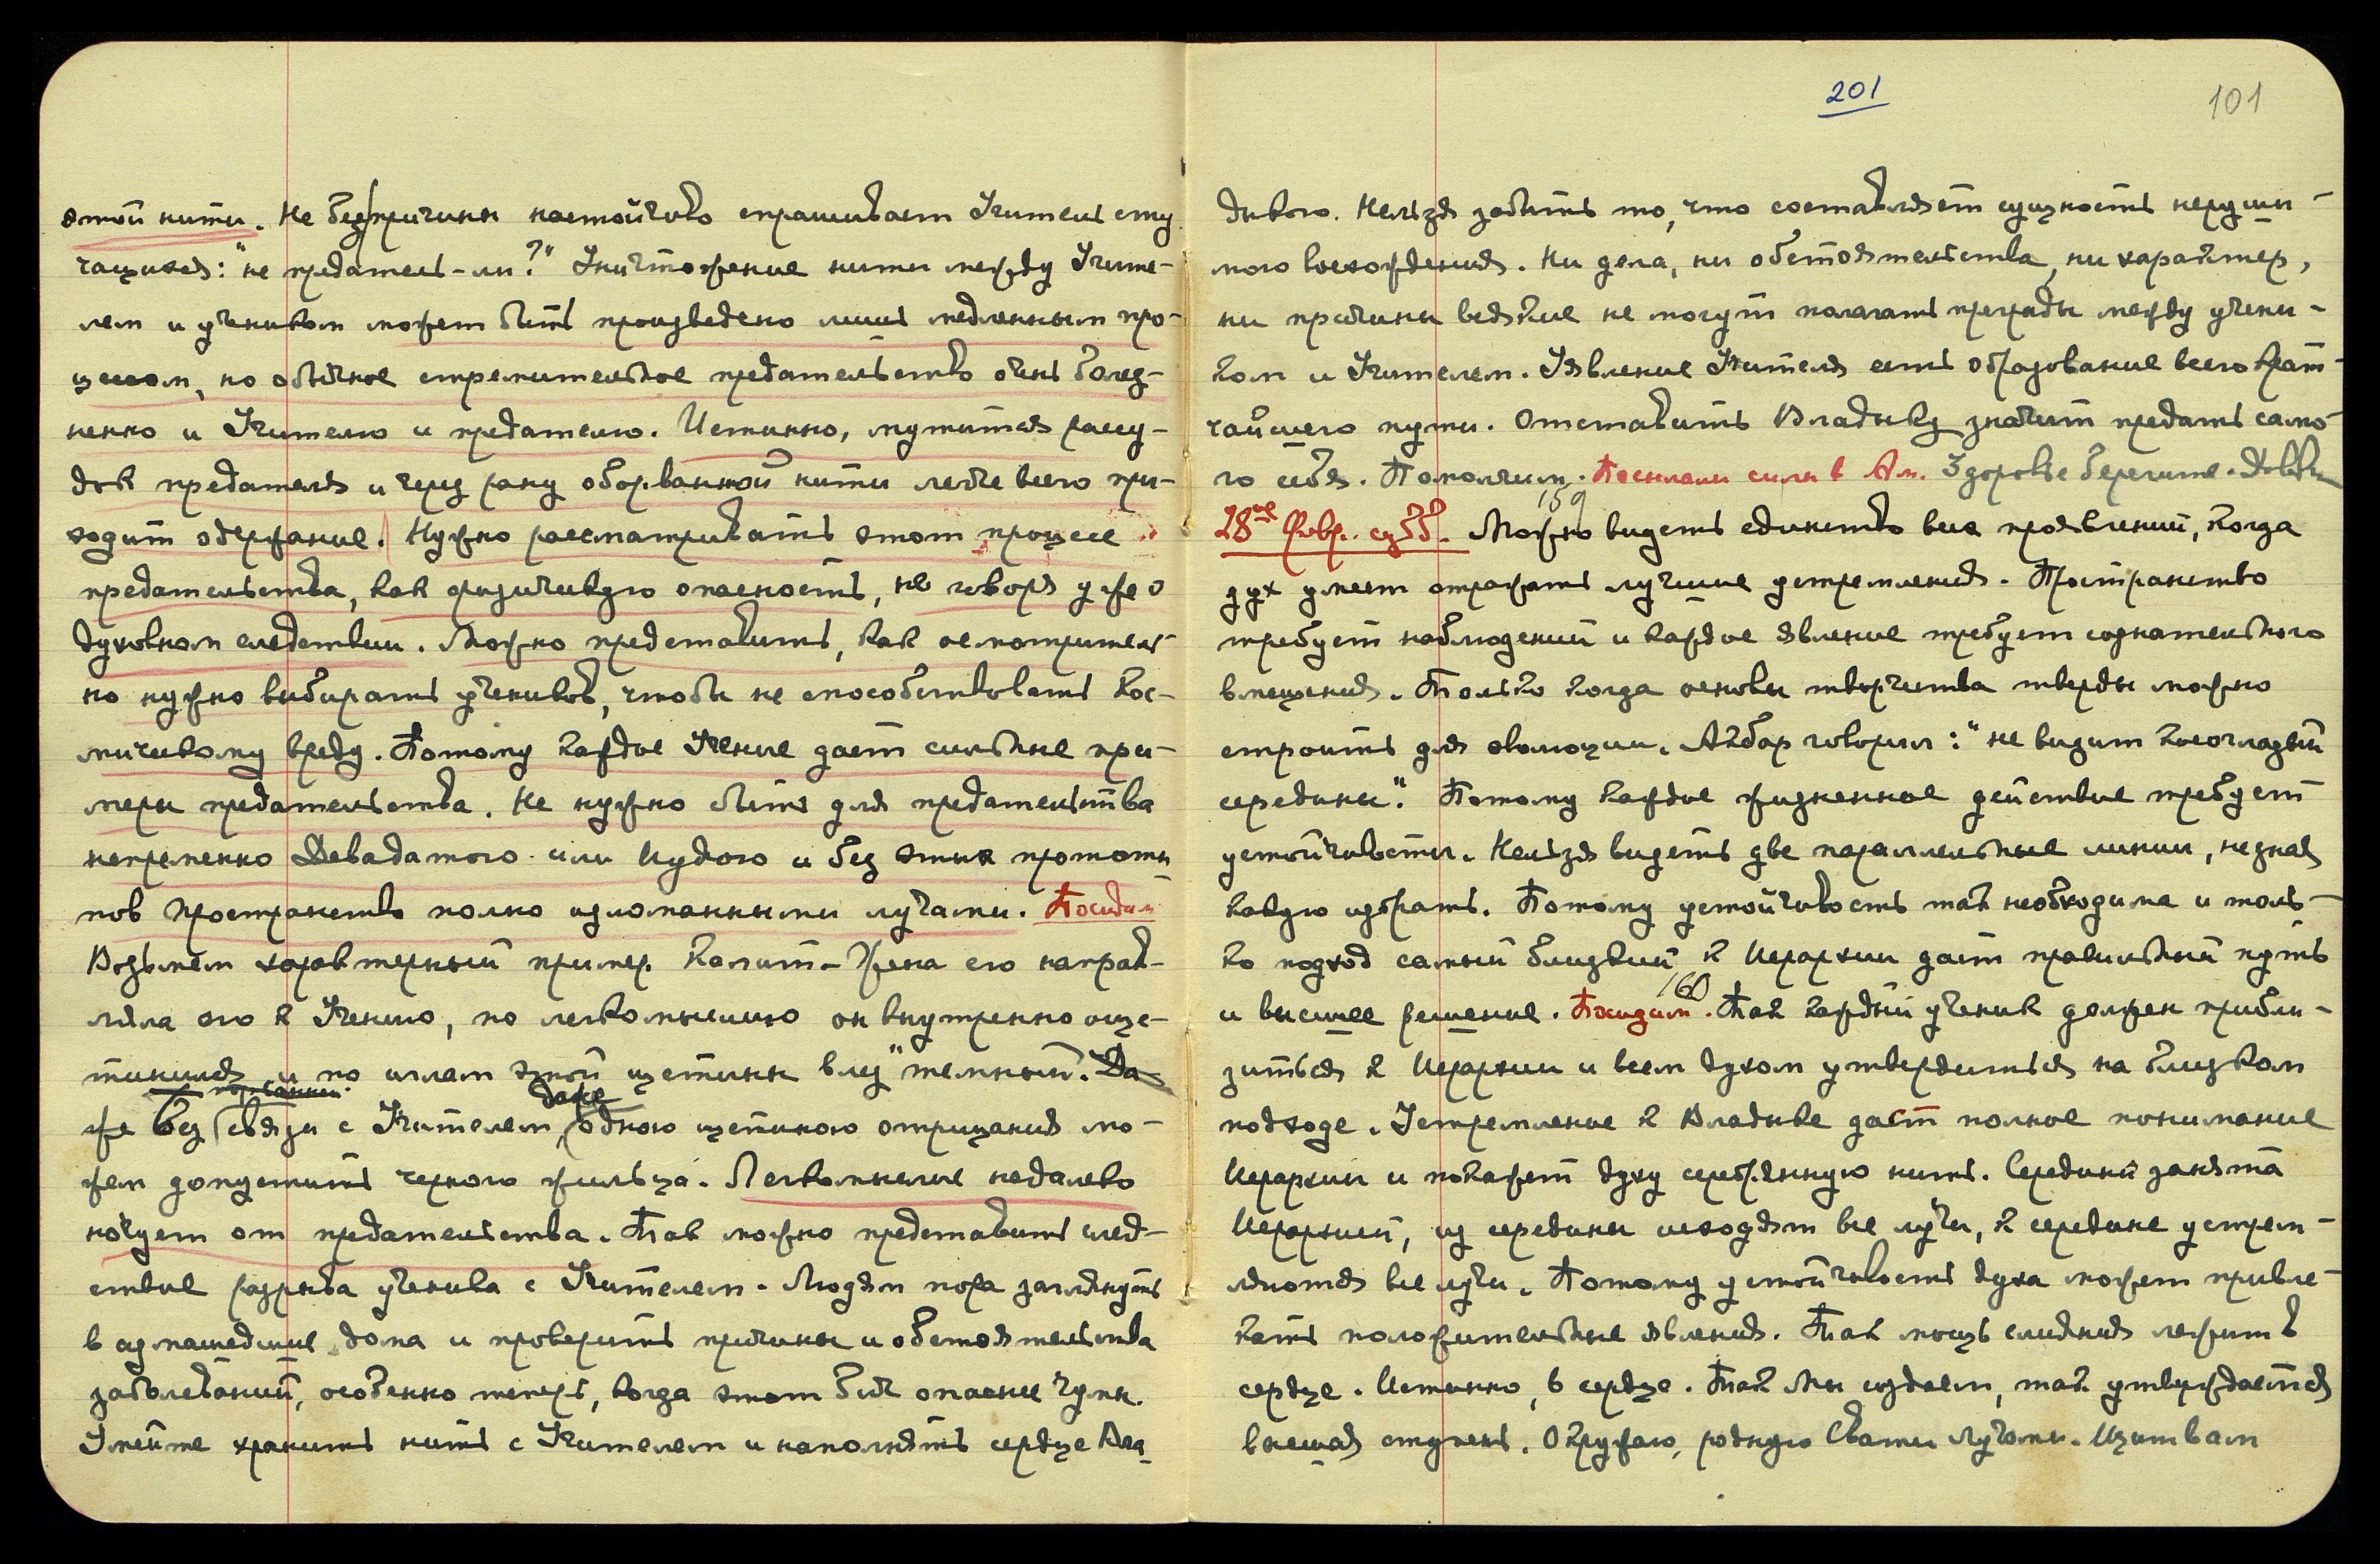 этой нити. Не без причины настойчиво спрашивает Учитель ему
чащихся: "не предатель-ли?" Уничтожение нити между Учите-
лем и учеником может быть произведено лишь медленным про-
цессом, но обычное стремительное предательство очень болез-
ненно и Учителю и предателю. Истинно, мутится рассу-
док предателя и через рану оборванной нити легче всего при-
ходит одержание. Нужно рассматривать этот процесс
предательства, как физическую опасность, не говоря уже о
духовном следствии. Можно представить, как осмотритель
но нужно выбирать учеников, чтобы не способствовать кос-
мическому вреду. Потому каждое Учение дает сильные при-
меры предательства. Не нужно быть для предательства
непременно Девадатого или Иудого и без этих прототи
пов пространство полно изломанными лучами. Походим
Возьмем характерный пример. Калит. Жена его направ-
ляла его к Учению, но легкомыслию он внутренно още-
тинился и по иглам этой щетины влез "темный". Да-
же без порванной связи с Учителем, даже одною щетиною отрицания мо-
жем допустить черного жильца. Легкомыслие недалеко
ночует от предательства. Так можно представить след-
ствие разрыва ученика с Учителем. Людям пора заглянуть
в сумашедшие дома и проверить причины и обстоятельства
заболеваний, особенно теперь, когда этот бич опаснее чумы.
Умейте хранить нить с Учителем и наполнять сердце Вла
201
101
дыкою. Нельзя забыть то, что составляет сущность неруши-
мого восхождения. Ни дела, ни обстоятельства, ни характер,
ни причины всякие не могут полагать преграды между учени-
ком и Учителем. Явление Учителя есть образование всего крат-
чайшего пути. Отставить Владыку значит предать само-
го себя. Помолчим. Посылали силы в Ам. Здоровье берегите. Довольно
159
28ое Февр. субб. Можно видеть единство всех проявлений, когда
дух умеет отражать лучшие устремления. Пространство
требует наблюдений и каждое явление требует сознательного
вмещения. Только когда основы творчества тверды можно
строить для эволюции. Акбар говорил: "не видит косоглазый
середины". Потому каждое жизненное действие требует
устойчивости. Нельзя видеть две параллельные линии, не зная
какую избрать. Потому устойчивость так необходима и толь-
ко подход самый близкий к Иерархии дает правильный путь
и высшее решение. Походим. 160 Так каждый ученик должен прибли-
зиться к Иерархии и всем духом утвердиться на близком
подходе. Устремление к Владыке даст полное понимание
Иерархии и покажет духу серебрянную нить. Середина занята
Иерархией, из середины исходят все лучи, к середине устрем-
ляются все лучи. Потому устойчивость духа может привле-
кать положительные явления. Так мощь слияния лежит в
сердце. Истинно, в сердце. Так Мы создаем, так утверждается
высшая ступень. Окружаю, родную Свати лучами. Щит вам